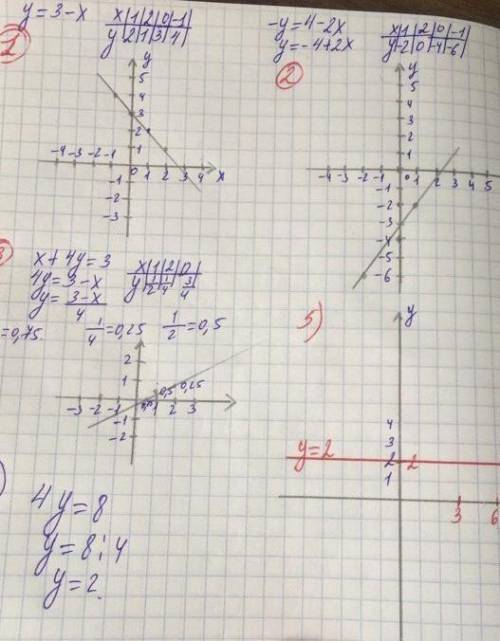 1
y = 3 - x
x | 1 | 2 | 0 | -1
y | 2 | 1 | 3 | 4
y
5
4
3
2
1
-4 -3 -2 -1 0 1 2 3 4 x
-1
-2
-3
2
-y = 4 - 2x
y = -4 + 2x
x | 1 | 2 | 0 | -1
y | -2 | 0 | -4 | -6
y
5
4
3
2
1
-4 -3 -2 -1 0 1 2 3 4 5
-1
-2
-3
-4
-5
-6
3
x + 4y = 3
4y = 3 - x
y = 3-x/4
x | 1 | 2 | 0
y | 1/2 | 1/4 | 3/4
= 0,75
1/4 = 0,25
1/2 = 0,5
2
1
0,5 0,25
-3 -2 -1 1 2 3
-1
-2
4y = 8
y = 8 : 4
y = 2
5)
y
4
3
y = 2
2 2
1
3 6